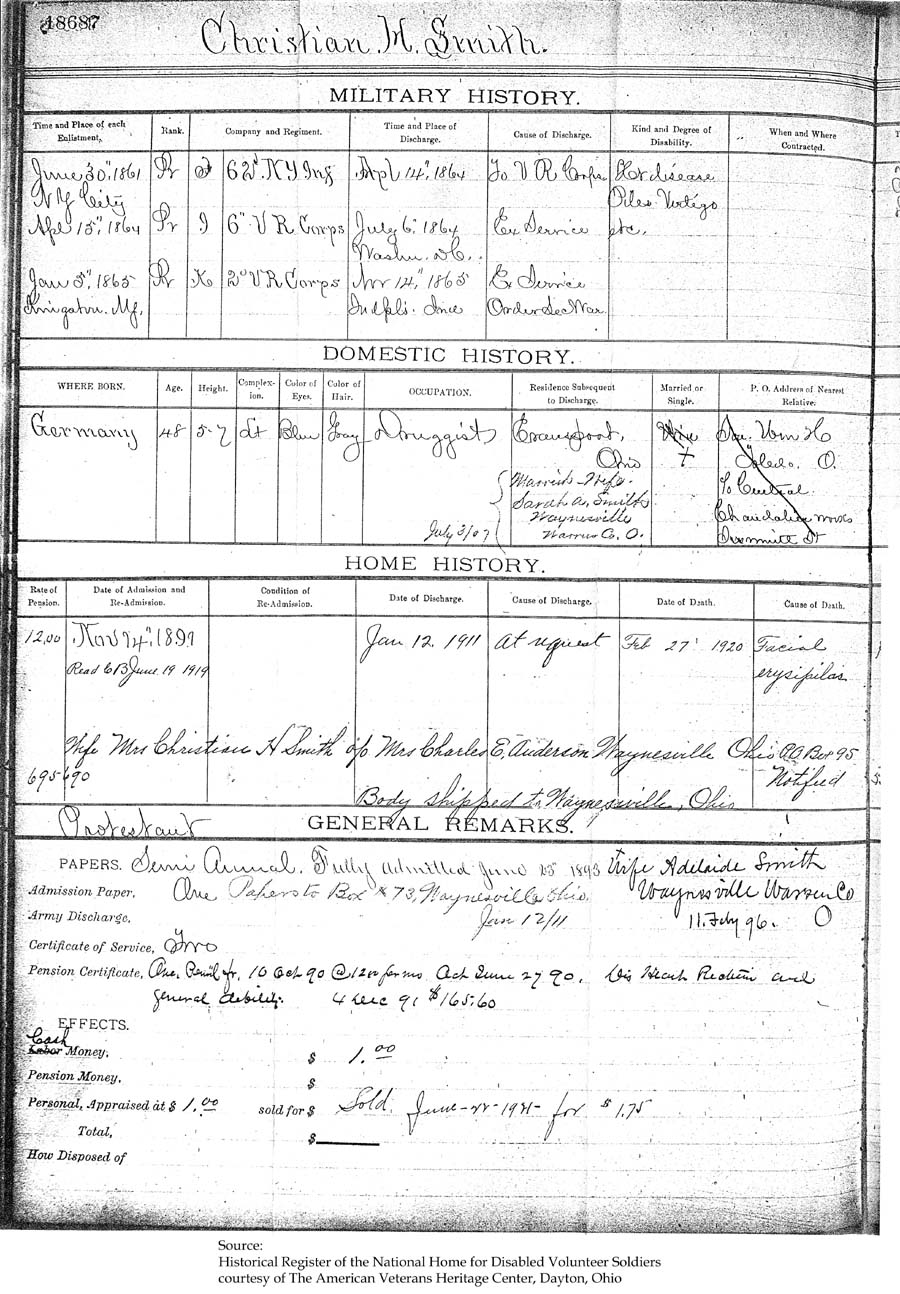 18687
Christian. H. Smith.
MILITARY HISTORY.
Time and Place of each Enlistment,
Rank.
Company and Regiment.
Time and Place of Discharge.
Cause of Discharge.
Kind and Degree of Disability.
When and Where Contracted.
June 30", 1861 Pr 62" NY Inf Apl 14", 1864 To V R Corps Ht disease
NY City Piles Vertigo
Apl 15", 1864 Pr I 6" V R Corps July 6, 1864 Ex Service etc.
Washn. D.C.
Jan 5", 1865 Pr K 2" V R Corps Nov 14," 1865 Ex Service
Order Sec War
DOMESTIC HISTORY.
WHERE BORN.
Age.
Height.
Complexion.
Color of Eyes.
Color of Hair.
OCCUPATION.
Residence Subsequent to Discharge.
Married or Single.
P. O. Address of Nearest Relative.
Germany 48 5-7 Lt Blue Gray Druggist
Ohio Toledo. O.
Married - Wife. c/o Central
Sarah A. Smith
Waynesville
July 3/07 Warren Co. O.
HOME HISTORY.
Rate of Pension.
Date of Admission and Re-Admission.
Condition of Re-Admission.
Date of Discharge.
Cause of Discharge.
Date of Death.
Cause of Death.
12,00 Jan 12 1911 At request Feb 27" 1920 Facial
June 19 1919 erysipilas
Wife Mrs Christian H Smith c/o Mrs Charles E, Anderson Waynesville Ohio P.O. Box 95
695690 Notified
Body shipped to Waynesville, Ohio
Protestant
GENERAL REMARKS.
PAPERS. Semi Annual. Fully admitted June 1893 Wife Adelaide Smith
Admission Paper, One Papers to Box # 73, Waynesville Ohio. Waynesville Warren Co
Army Discharge, Jan 12/11 96. O
Certificate of Service, Two
Pension Certificate, One. 10 Oct 90 @ 12 00 Act June 27 90. Dis Heart and
general debility. 4 Dec 91 $165.60
EFFECTS.
Cash
Labor Money, $ 1.00
Pension Money, $
Personal, Appraised at $ 1.00 sold for $ Sold. June-22-1921- for $1.75
Total, $
How Disposed of
Source:
Historical Register of the National Home for Disabled Volunteer Soldiers
courtesy of The American Veterans Heritage Center, Dayton, Ohio